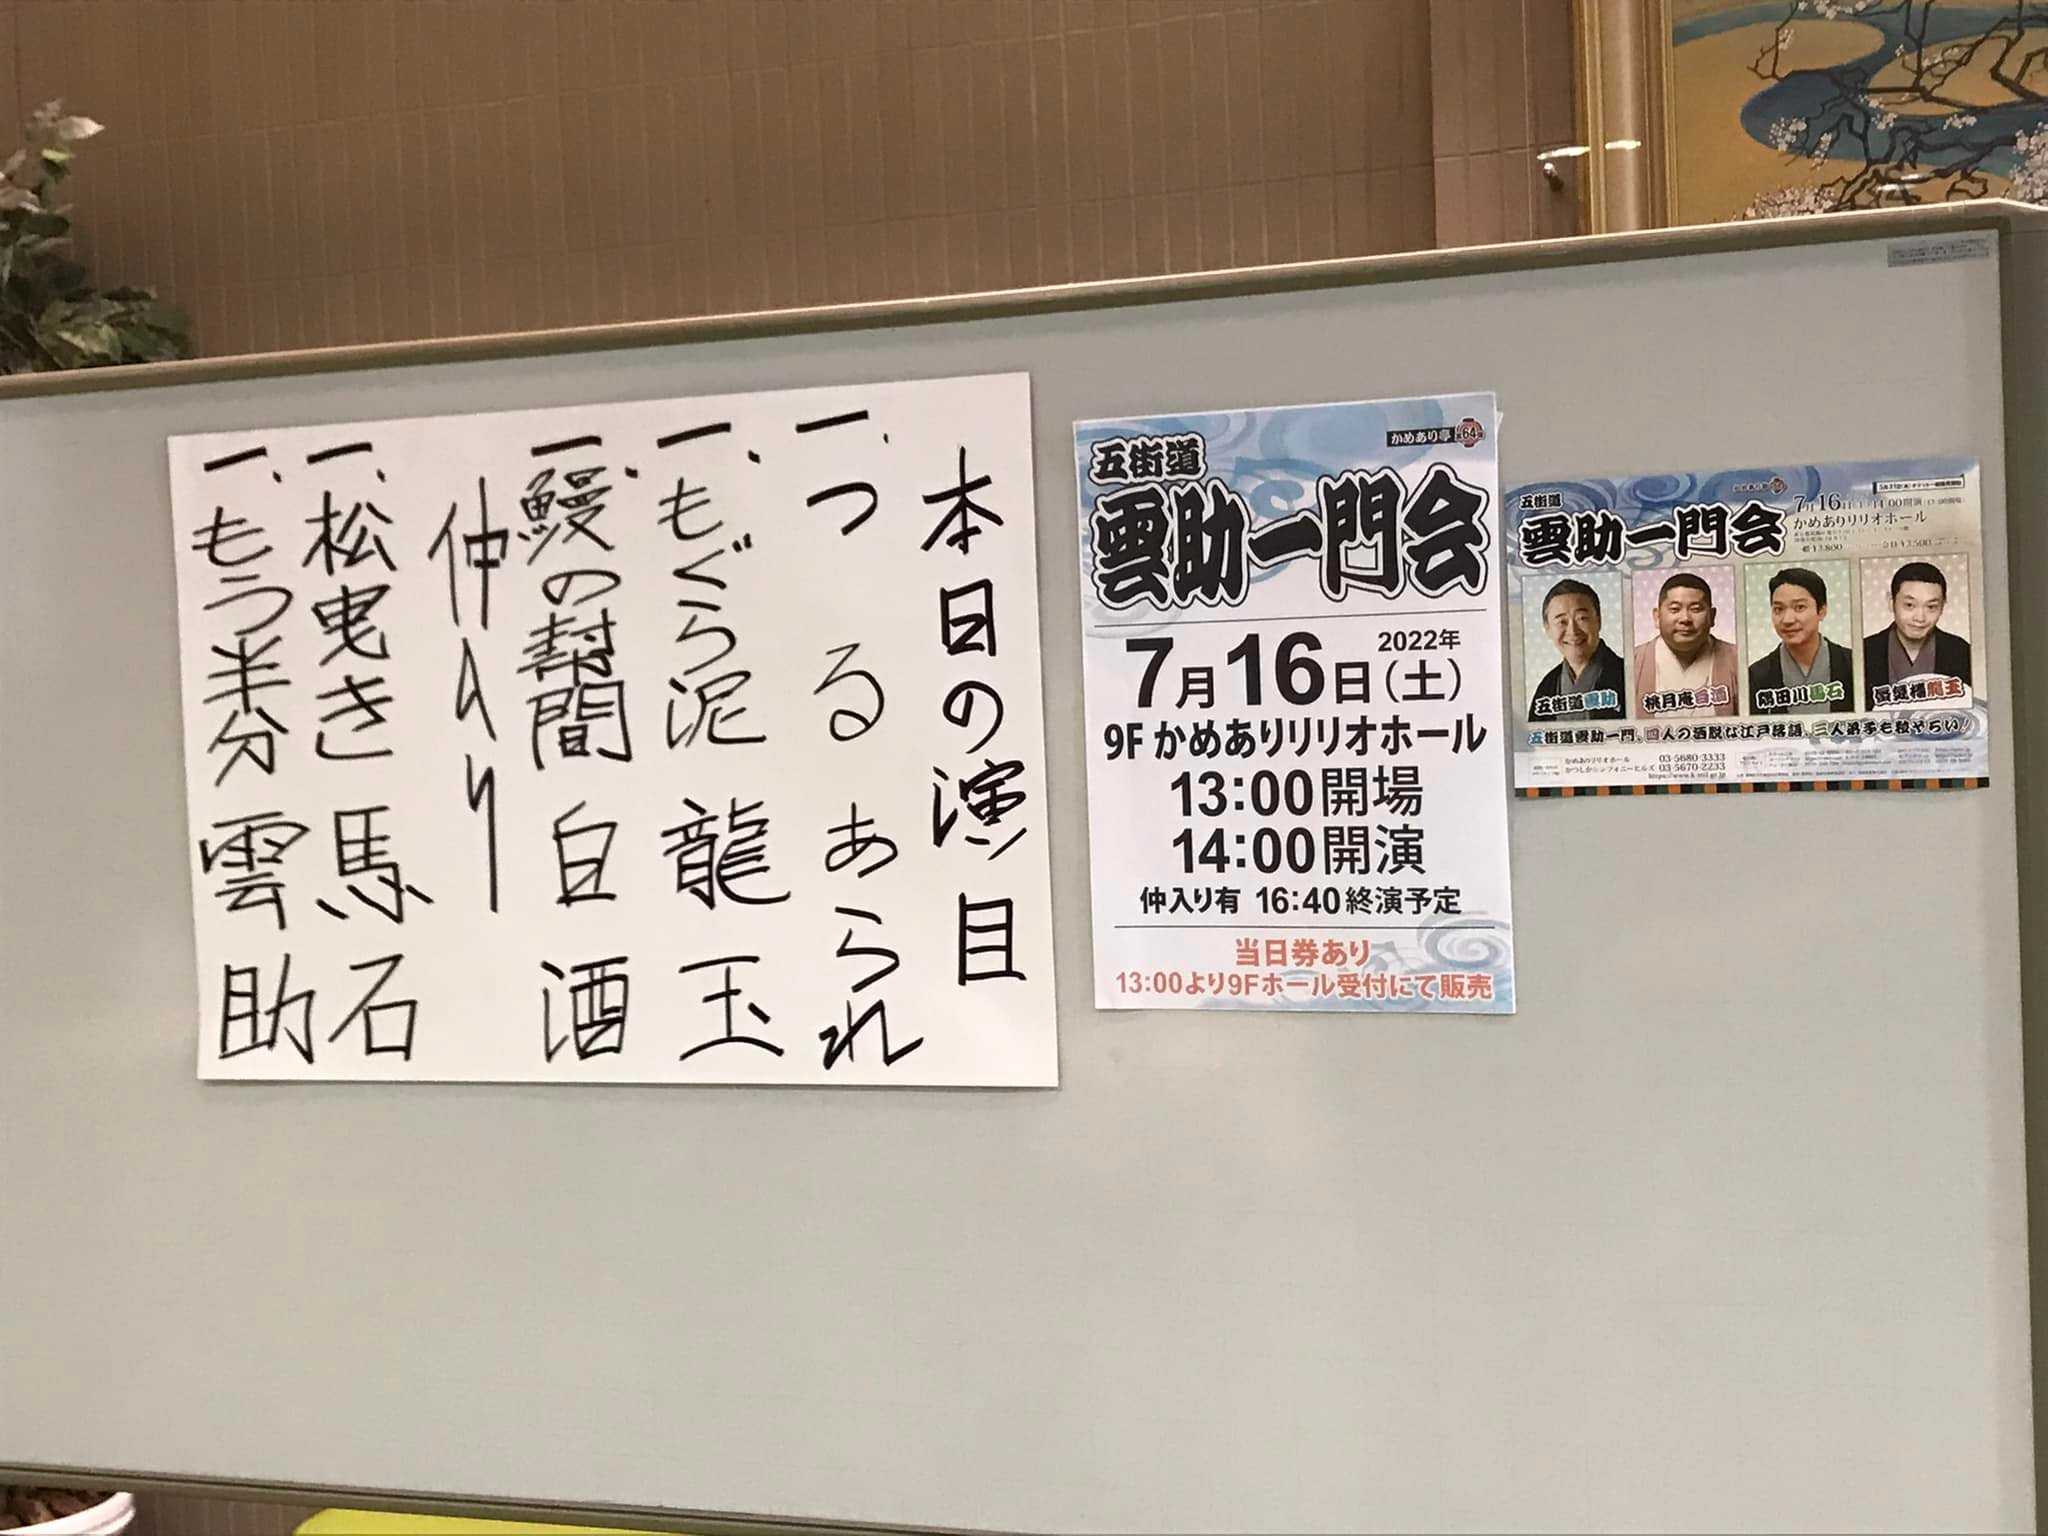 本日の演目
一、つる あられ
一、もぐら泥 龍玉
一、鰻の幇間 白酒
仲入り
一、松曳き 馬石
一、もう半分 雲助
かめあり亭 第64弾
五街道
雲助一門会
2022年
7月16日(土)
9F かめありリリオホール
13:00開場
14:00開演
仲入り有 16:40終演予定
当日券あり
13:00より9Fホール受付にて販売
五街道
雲助一門会
7月16日(土)14:00開演(13:00開場)
かめありリリオホール
五街道雲助
桃月庵白酒
隅田川馬石
蜃気楼龍玉
五街道雲助一門、四人の洒脱な江戸落語、三人弟子も粒ぞろい!
かめありリリオホール 03-5680-3333
かつしかシンフォニーヒルズ 03-5670-2233